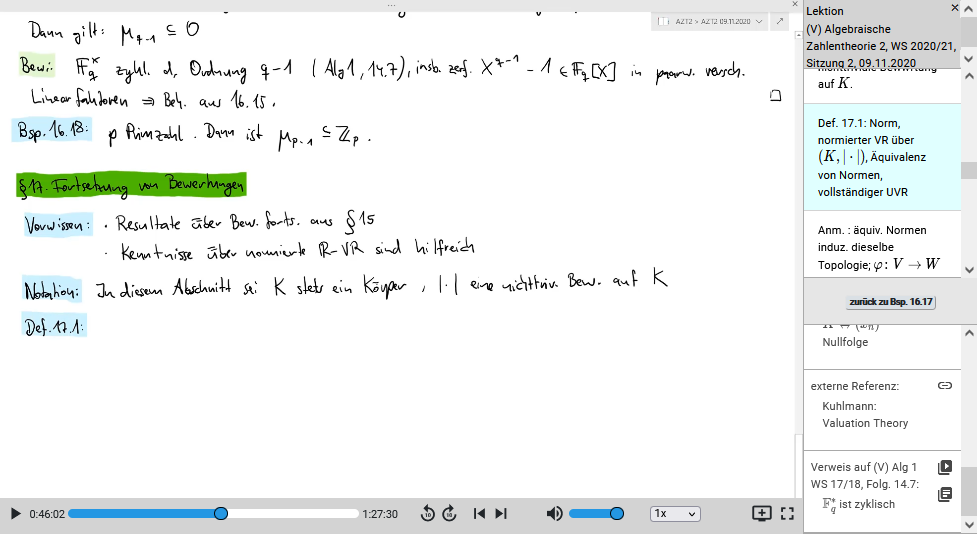 AZT2 > AZT2 09.11.2020
Dann gilt: μ_{q-1} ⊆ O
Bew.: F_q^× zykl. d. Ordnung q-1 (Alg1, 14.7), insb. zerf. X^{q-1} - 1 ∈ F_q[X] in paarw. versch.
Linearfaktoren ⇒ Beh. aus 16.15.
Bsp. 16.18: p Primzahl. Dann ist μ_{p-1} ⊆ ℤ_p.
§17. Fortsetzung von Bewertungen
Vorwissen: · Resultate über Bew.forts. aus §15
· Kenntnisse über normierte ℝ-VR sind hilfreich
Notation: In diesem Abschnitt sei K stets ein Körper, |·| eine nichttriv. Bew. auf K
Def. 17.1:
0:46:02
1:27:30
10
10
1x
Lektion
(V) Algebraische
Zahlentheorie 2, WS 2020/21,
Sitzung 2, 09.11.2020
auf K.
Def. 17.1: Norm,
normierter VR über
(K, | · |), Äquivalenz
von Normen,
vollständiger UVR
Anm. : äquiv. Normen
induz. dieselbe
Topologie; φ: V → W
zurück zu Bsp. 16.17
Nullfolge
externe Referenz:
Kuhlmann:
Valuation Theory
Verweis auf (V) Alg 1
WS 17/18, Folg. 14.7:
F_q^* ist zyklisch